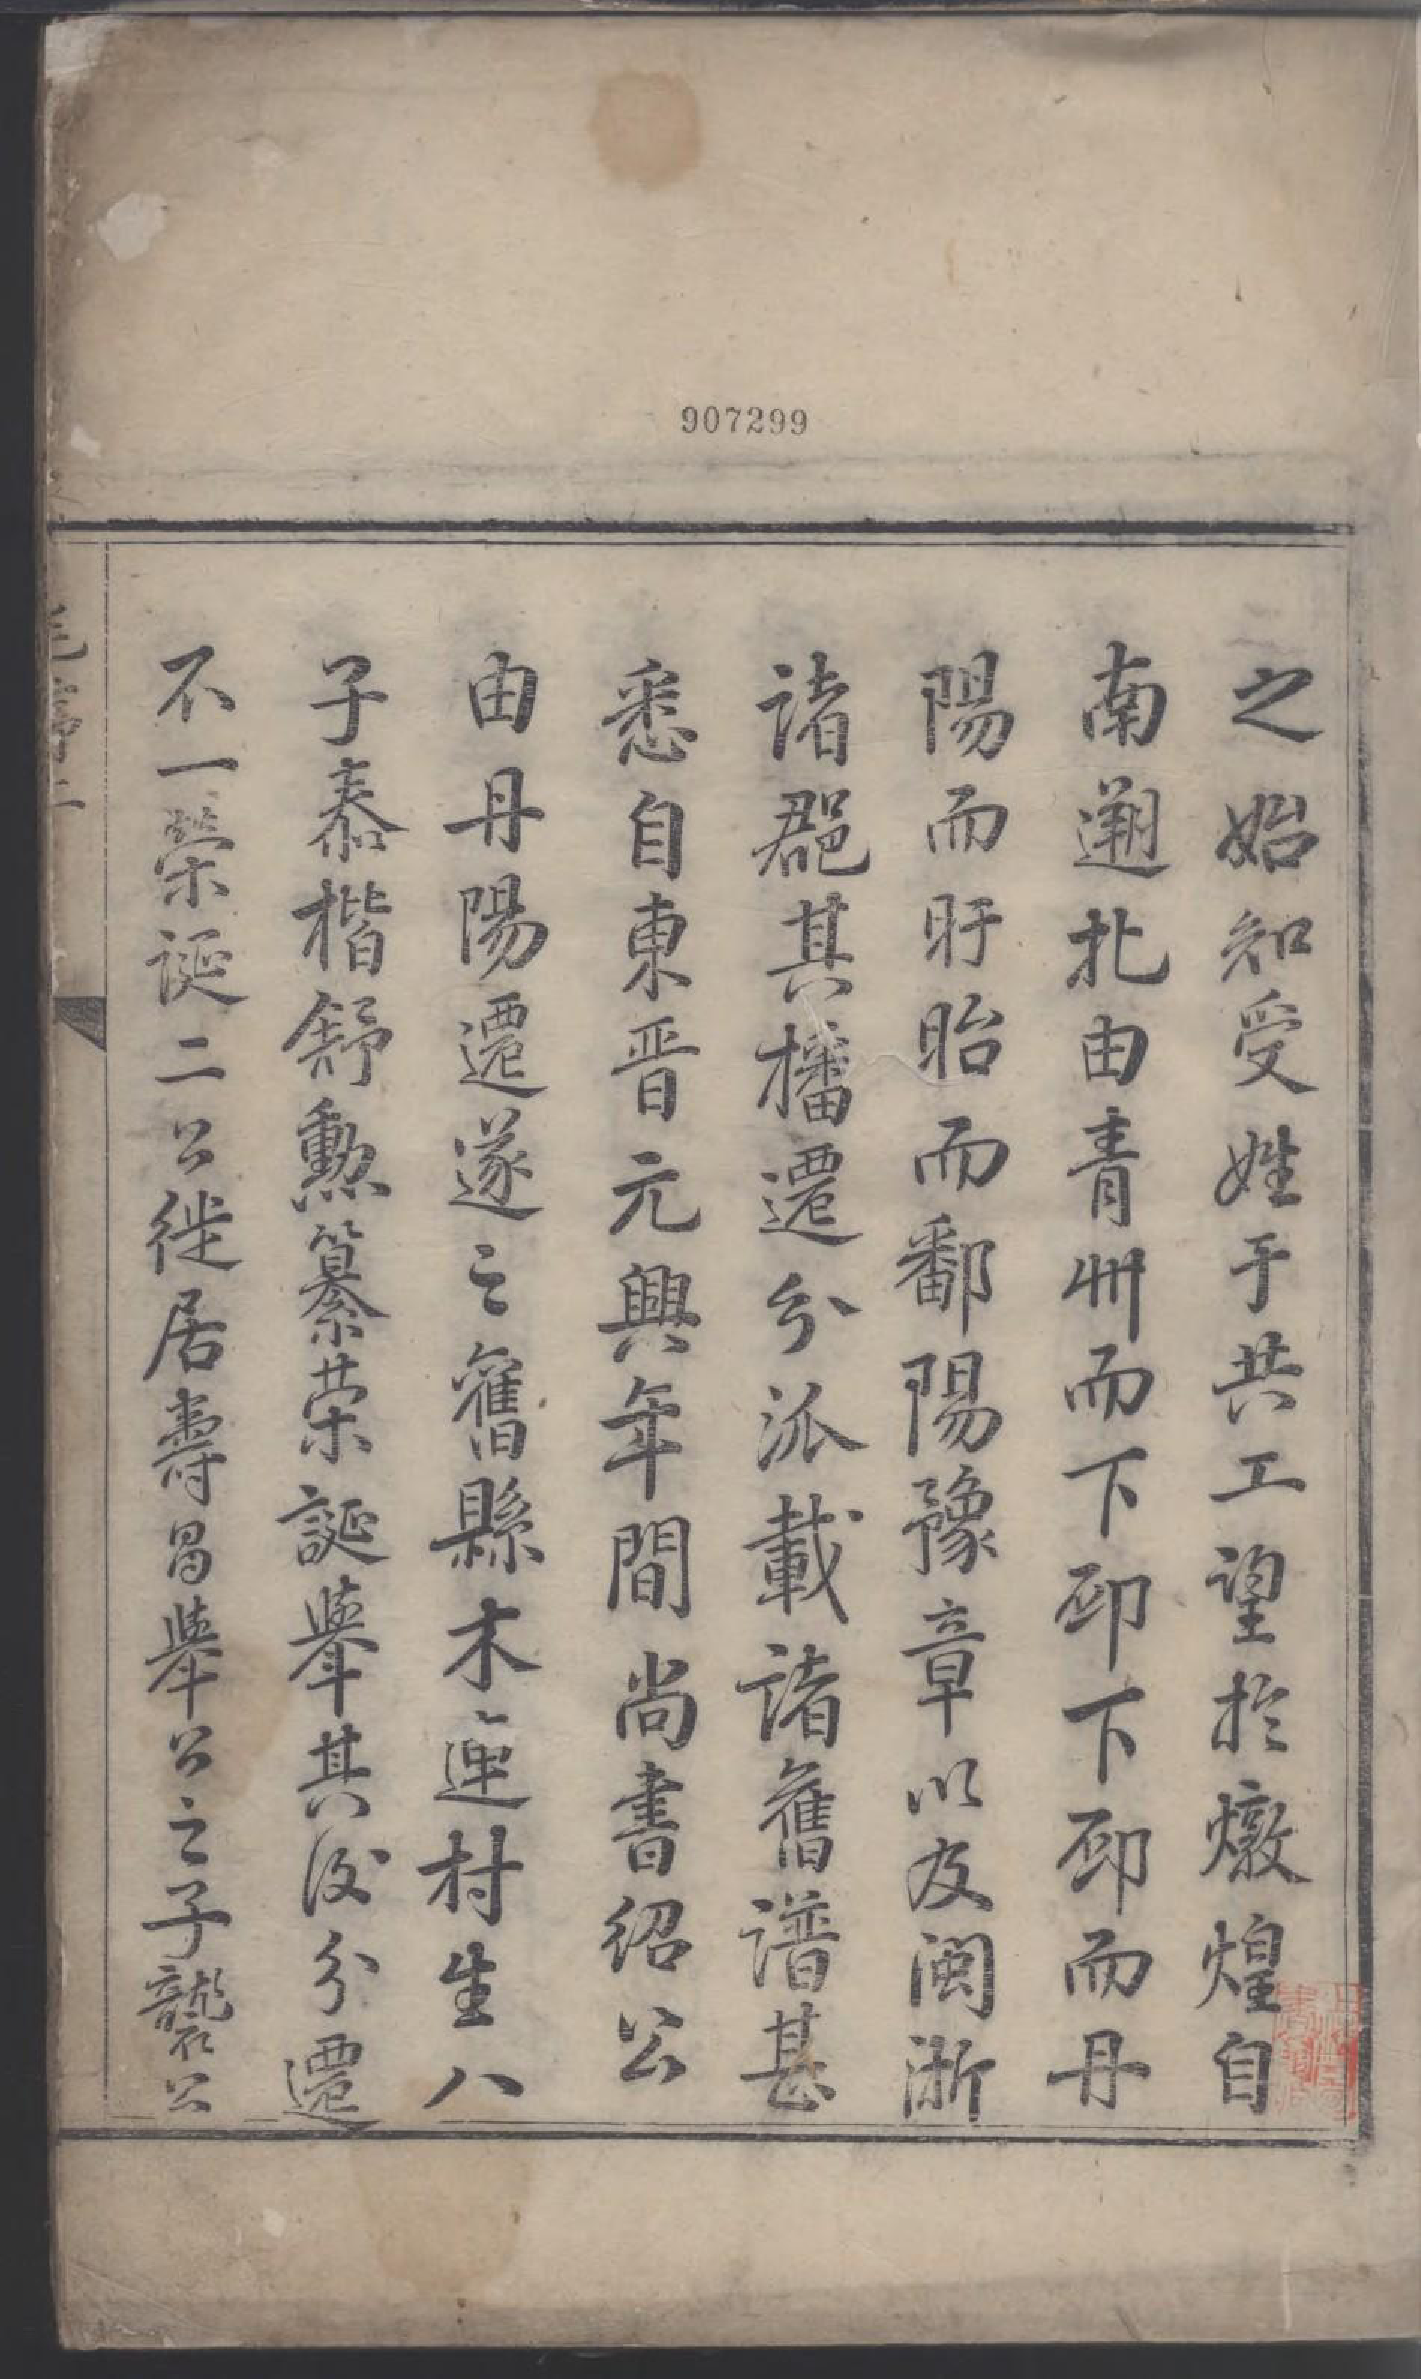 907299
之始知受姓于共工望於燉煌自
南遡北由青州而下邳下邳而丹
陽而盱眙而鄱陽豫章以及閩浙
諸郡其播遷分派載諸舊譜甚
悉自東晋元興年間尚書紹公
由丹陽遷遂之舊縣木連村生八
子泰楷舒勲纂荣誕舉其後分遷
不一荣誕二公徙居壽昌舉公之子龑公